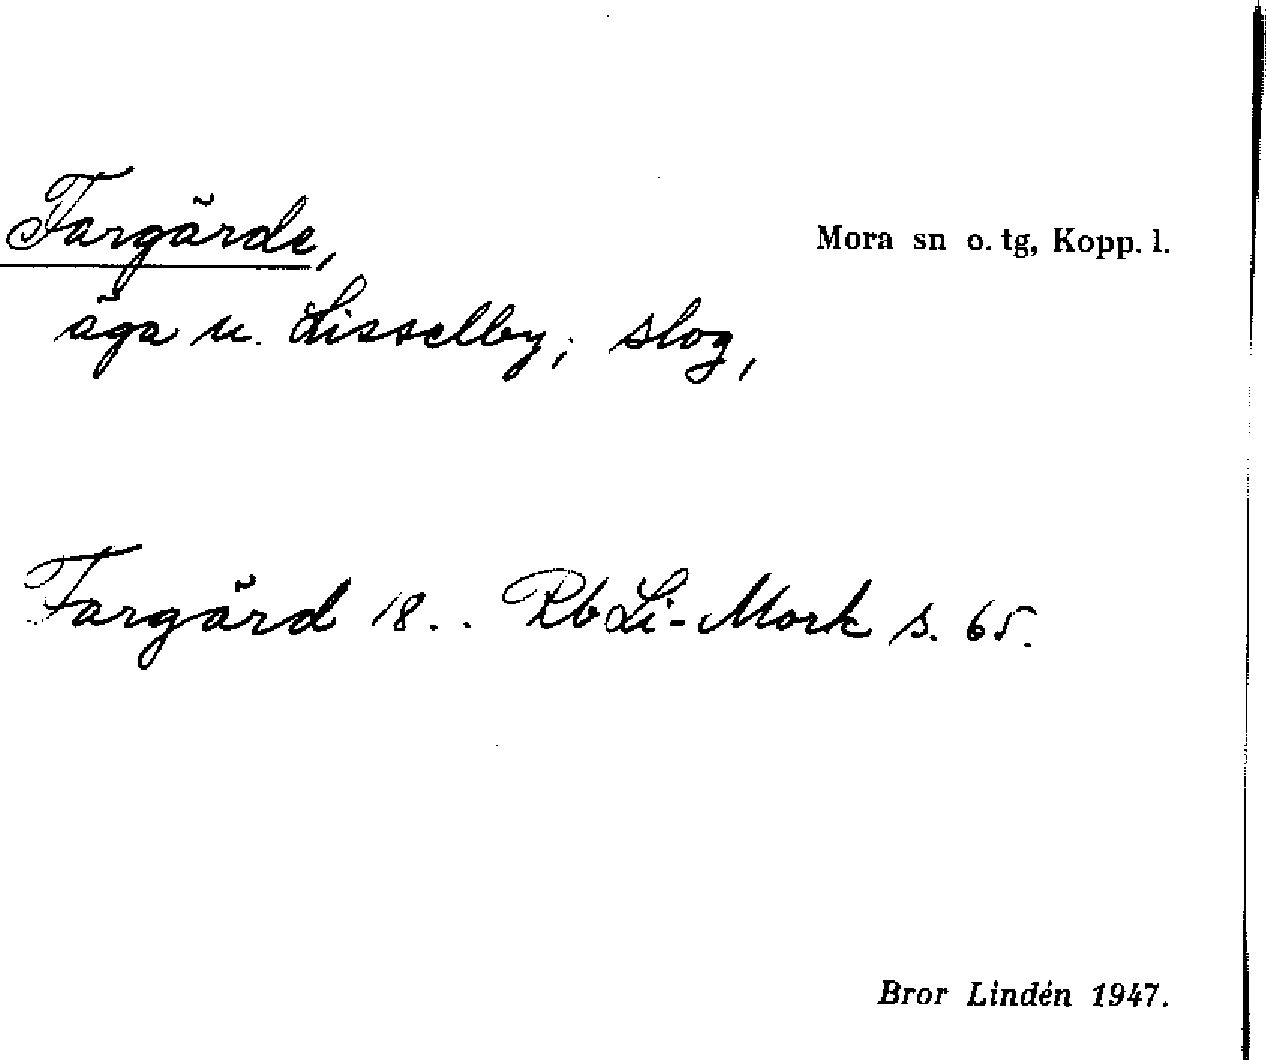 Fargärde,
Mora sn o. tg, Kopp. l.
äga u. Lisselby; slog,
Fargärd 18.. Rb Li-Mork s. 65.
Bror Lindén 1947.